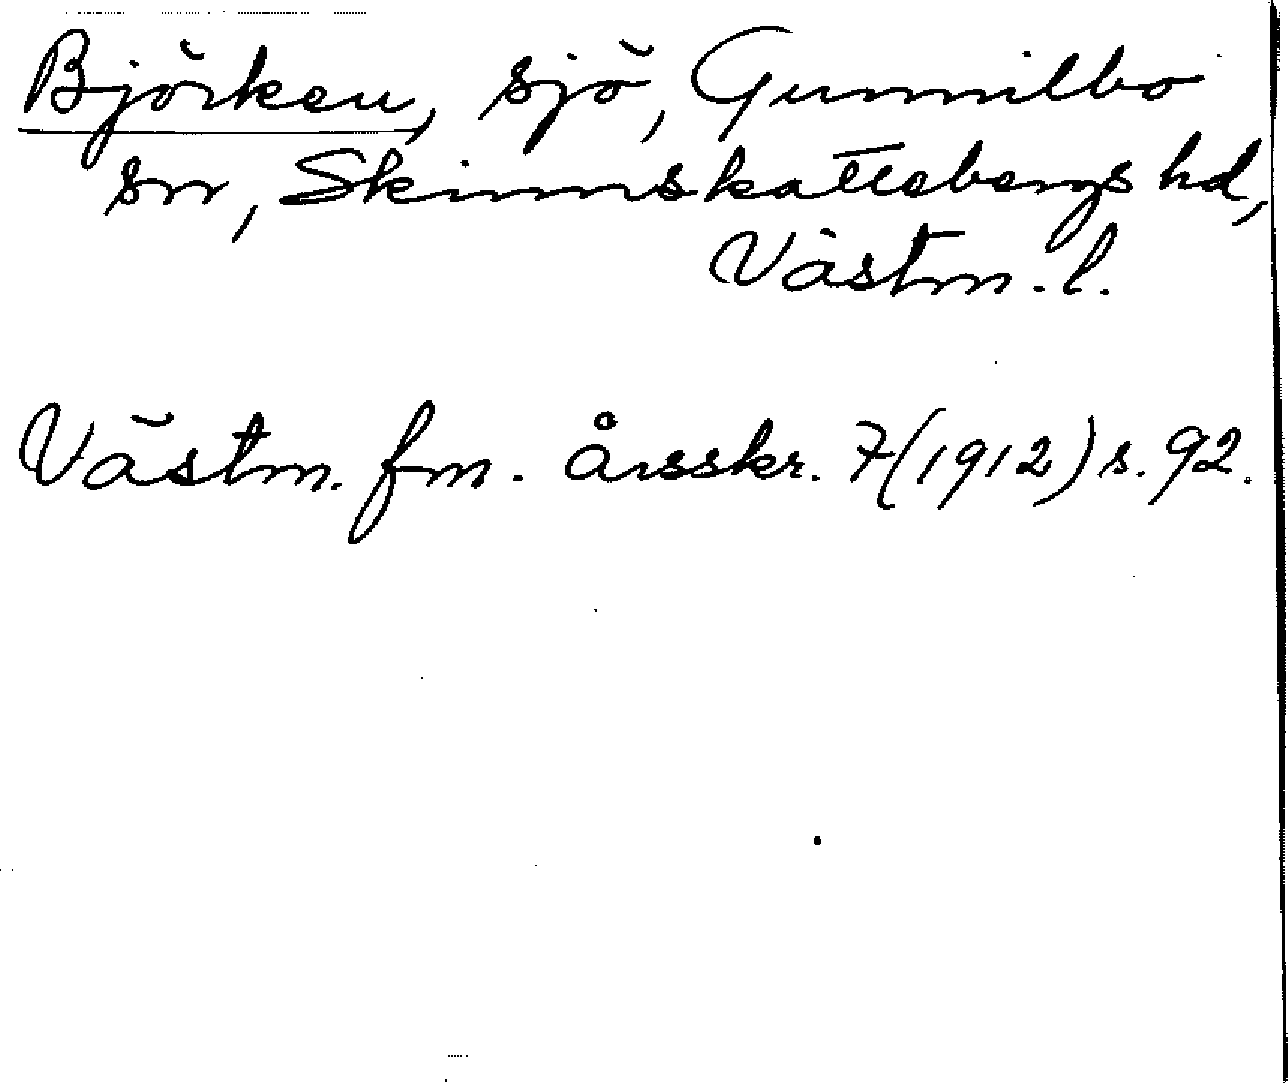 Björken, sjö, Gunnilbo
sn, Skinnskattebergs hd,
Västm. l.
Västm. fm. årsskr. 7(1912) s. 92.